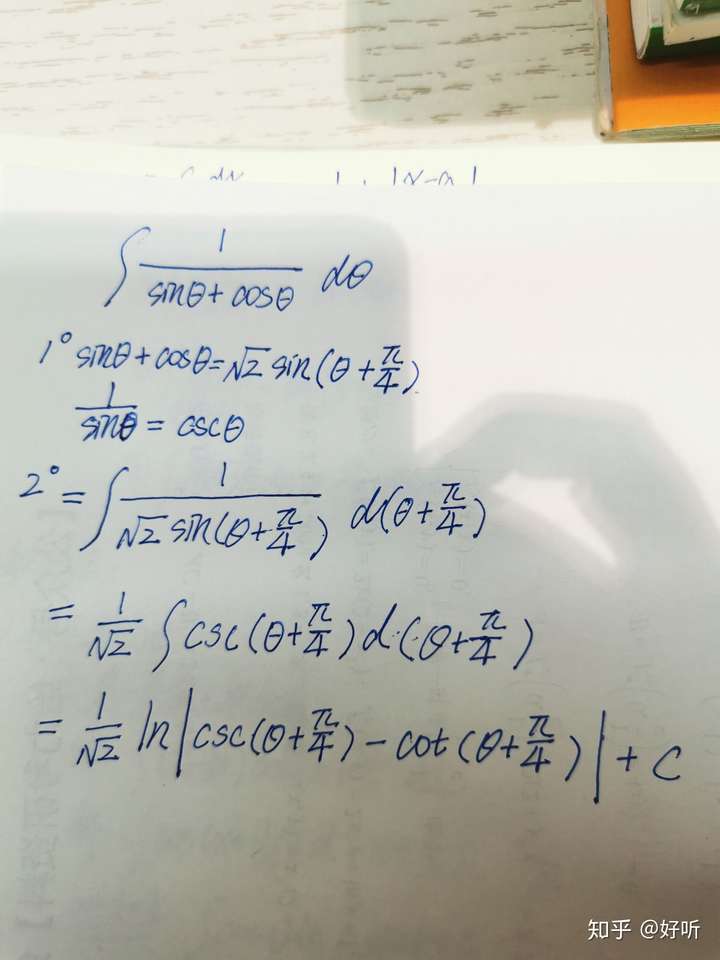 ∫ 1/(sinθ + cosθ) dθ
1° sinθ + cosθ = √2 sin(θ + π/4)
1/sinθ = cscθ
2° = ∫ 1/(√2 sin(θ + π/4)) d(θ + π/4)
= 1/√2 ∫ csc(θ + π/4) d(θ + π/4)
= 1/√2 ln|csc(θ + π/4) − cot(θ + π/4)| + C
知乎 @好听